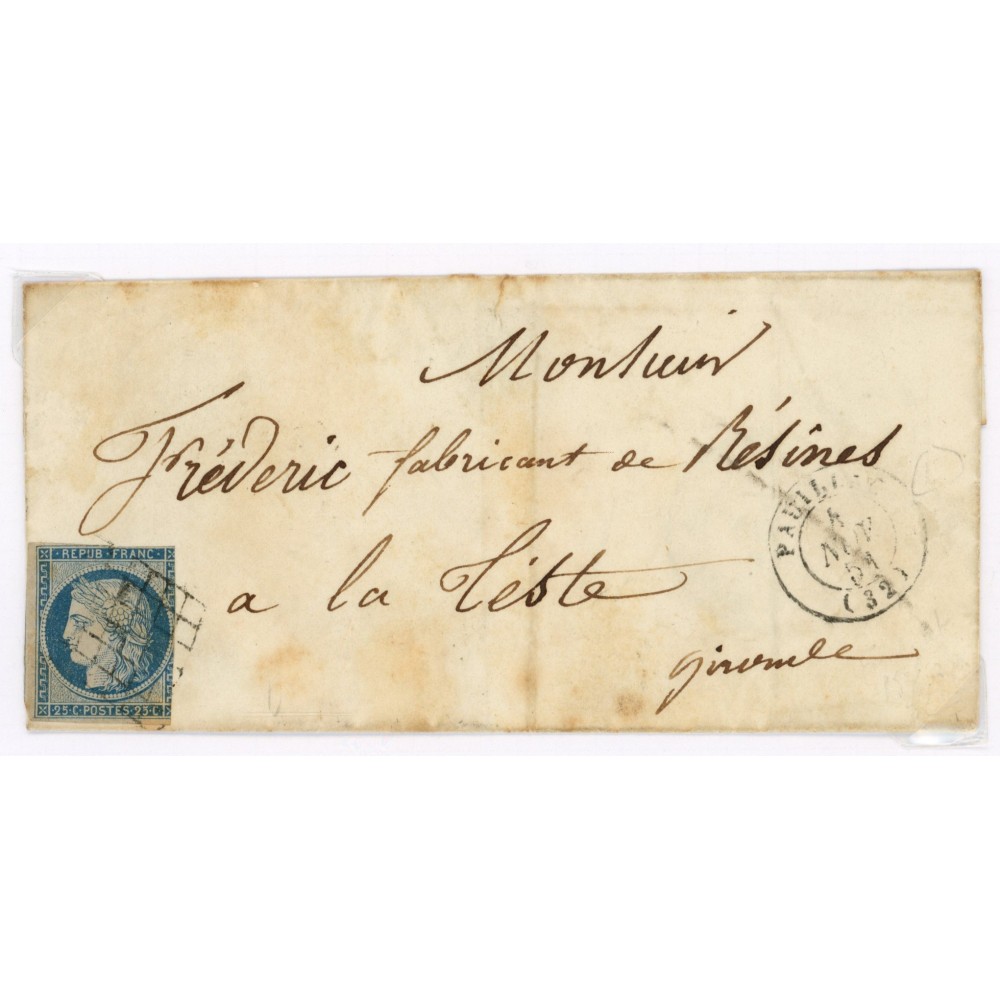 Monsieur
Fréderic fabricant de Résines
a la Téste
Gironde
REPUB FRANC
25·C·POSTES·25·C
PAUILLAC
NOV
51
(32)